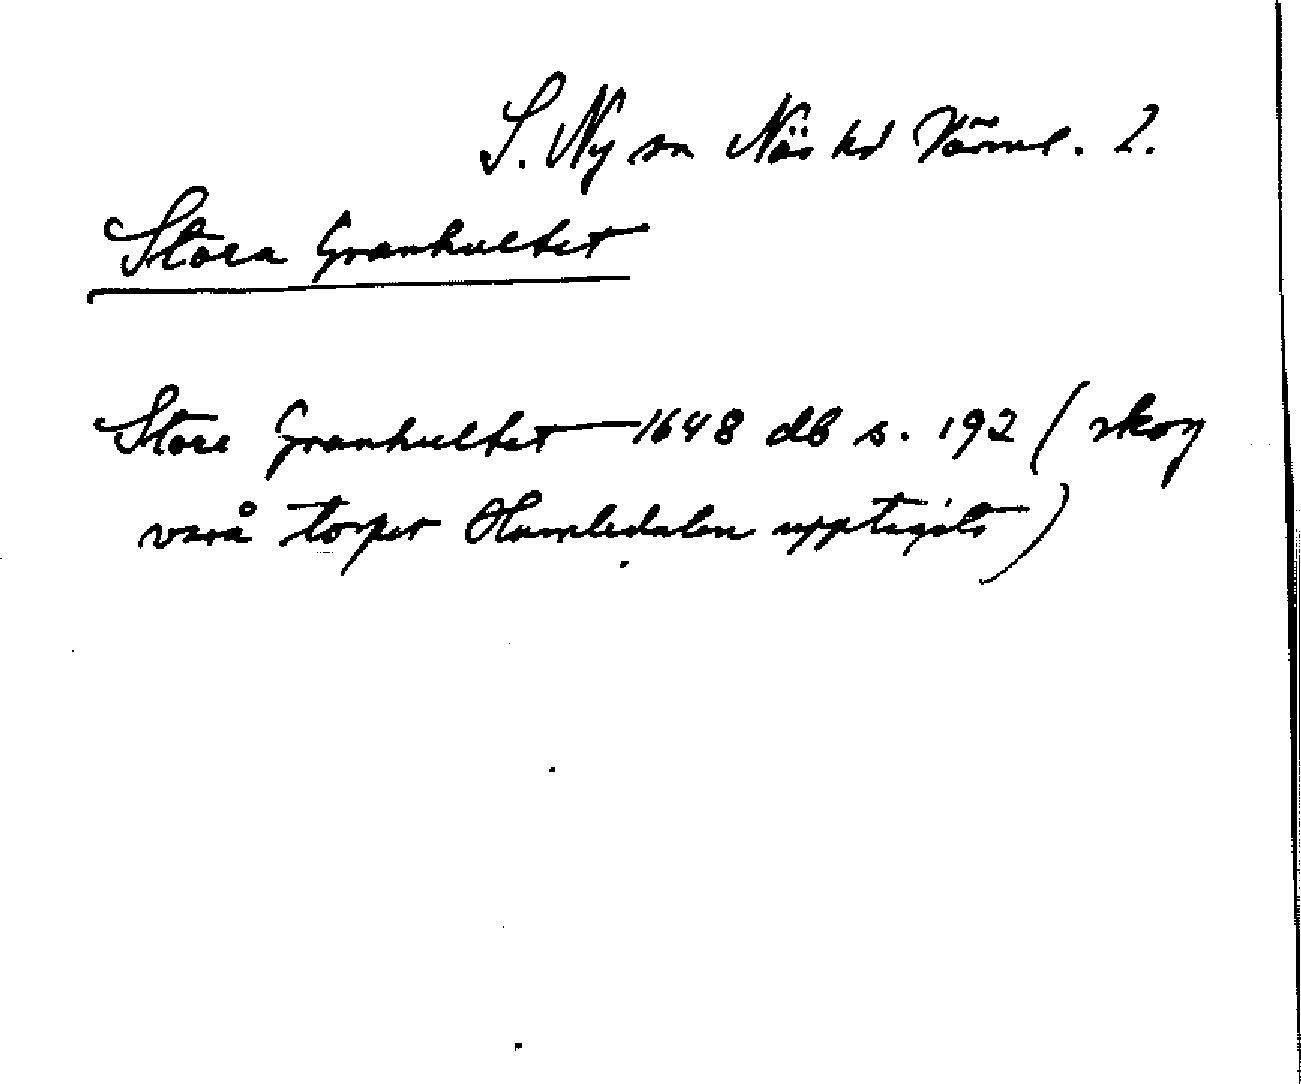 S. Ny sn Näs hd Värml. l.
Stora Granhultet
Store Granhultet 1648 db s. 192 (skog
varå torpet Humledalen upptagits)